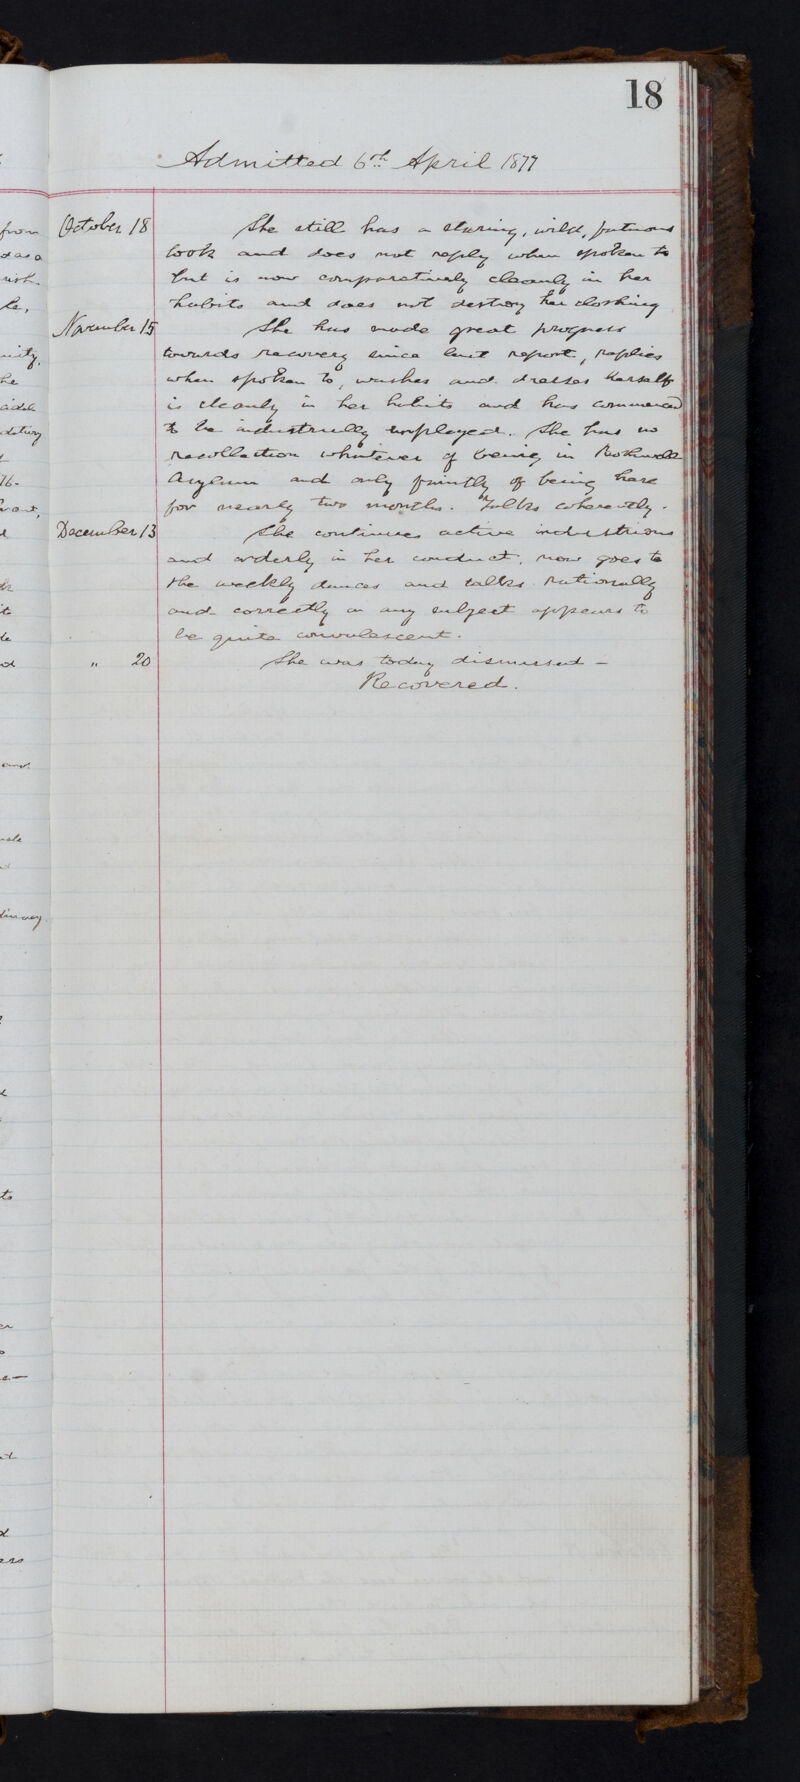 18
Admitted 6th April 1877
October 18 She still has a staring, wild, fatuous
look and does not reply when spoken to
but is now comparatively cleanly in her
habits and does not destroy her clothing
November 15 She has made great progress
towards recovery since last report, replies
when spoken to, washes and dresses herself
is cleanly in her habits and has commenced
to be industrially employed. She has no
recollection whatever of being in Rothwell
Asylum and only faintly of being here
for nearly two months. Talks coherently.
December 13 She continues active industrious
and orderly in her conduct, now goes to
the weekly dances and talks rationally
and correctly on any subject appears to
be quite convalescent.
" 20 She was today dismissed -
Recovered.